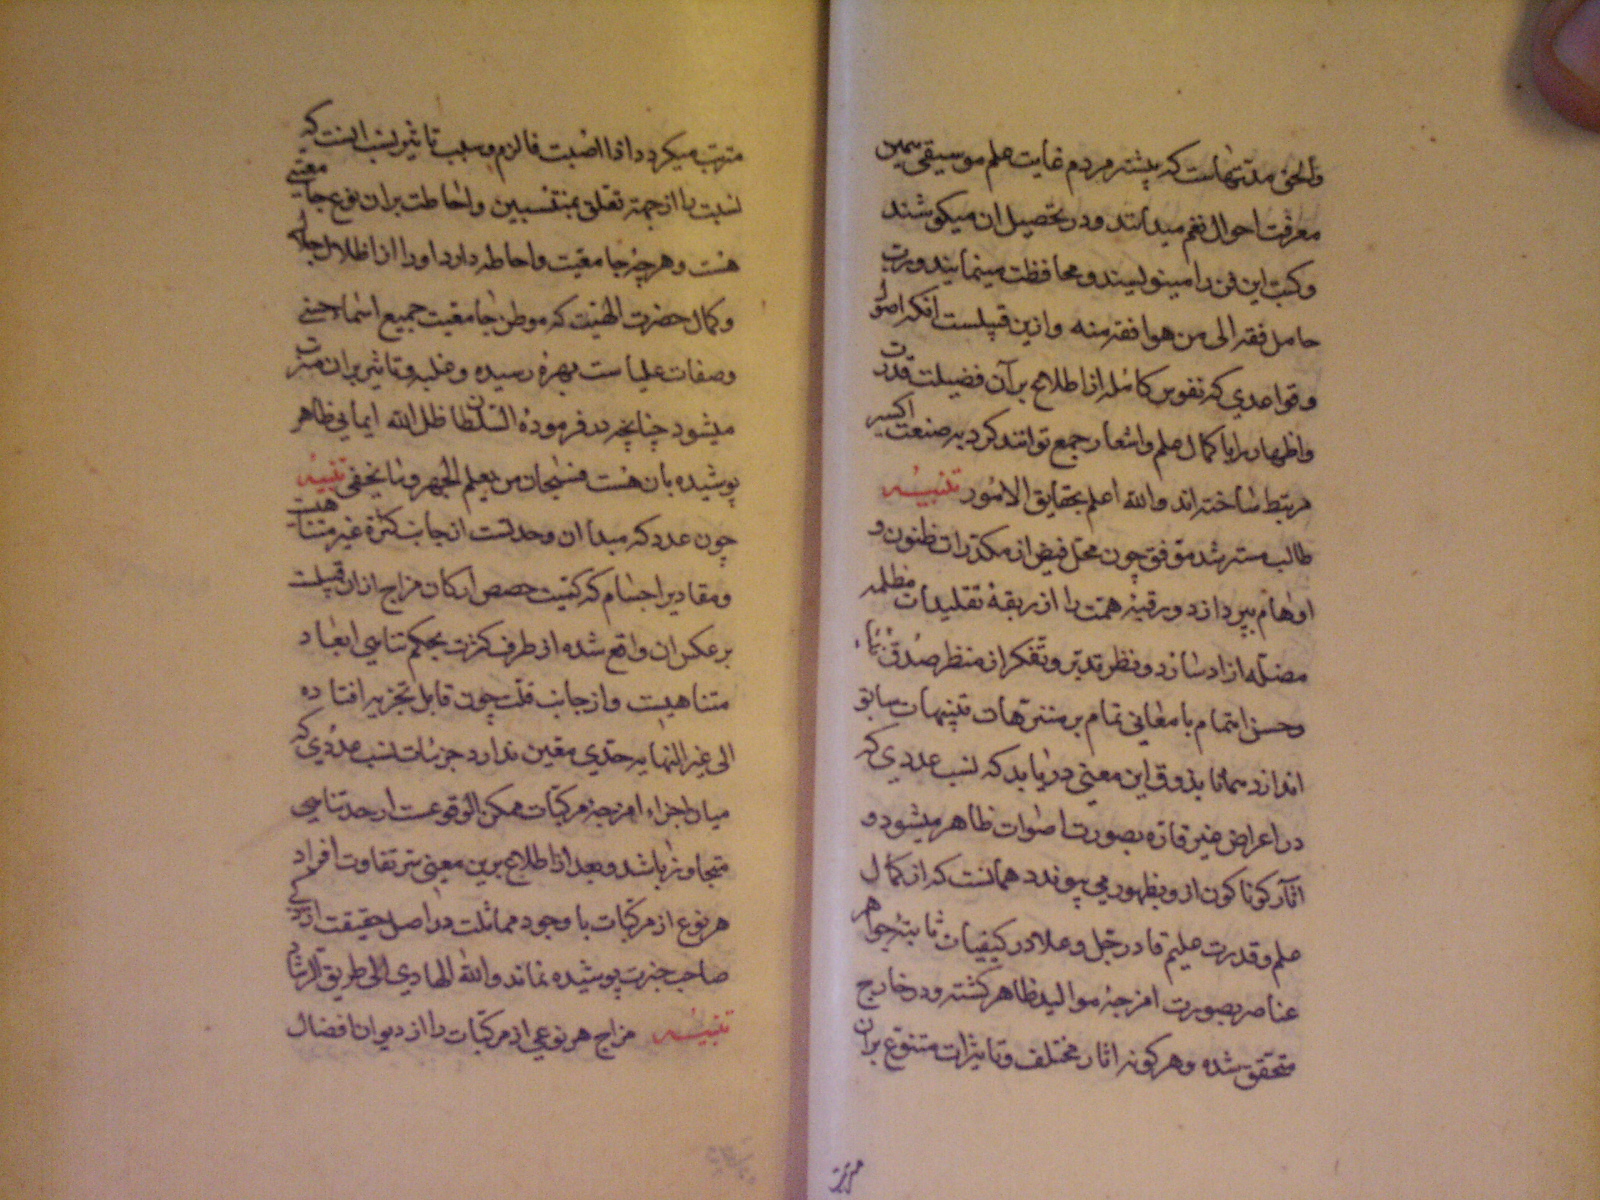 والحق مدتهاست که بیشتر مردم غایت علم موسیقی همین
معرفت احوال نغم میدانند و در تحصیل ان میکوشند
و کتب این فن را مینویسند و محافظت مینمایند و رب
حامل فقه الی من هو افقه منه وازین قبیلست انکه اصول
و قواعدی که نفوس کامله از اطلاع بر آن فضیلت قدرت
و اظهار برایا کمال علم واشعار جمع توانند کرد به صنعت اکسیر
مرتبط ساخته اند والله اعلم بحقایق الامور تنبیه
طالب مسترشد موفق چون محل فیض از مکدرات ظنون و
اوهام بپردازد و رقبۀ همت را از ربقۀ تقلیدات مظلمه
مضله ازاد سازد و نظر تدبر و تفکر از منظر صدق نماء
وحسن اهتمام با معانی تمام بر متنزهات تنبیهات سابق
اندازد همانا بذوق این معنی دریابد که نسب عددی که
در اعراض غیر قاره بصورت اصوات ظاهر میشود و
اثار کوناکون از و بظهور می پیوندد همانست که از کمال
علم و قدرت علیم قادر جل و علا در کیفیات ثابتۀ جواهر
عناصر بصورت امزجۀ موالید ظاهر کشته و در خارج
متحقق شده و هرکونه اثار مختلف و تاثیرات متنوع بران
مترتب
مترتب میکردد اذا اصبت فالزم و سبب تاثیر نسب انست که
نسبت را از جهة تعلق بمنتسبین و احاطت بران نوع جامعیتی
هست و هر چه جامعیت و احاطه دارد او را از اظلال جلال
و کمال حضرت الهیت که موطن جامعیت جمیع اسماء حسنی
وصفات علیاست بهرۀ رسیده و غلبه و تاثیر بران مترتب
میشود چنانچه در فرمودۀ السلطان ظل الله ایمایی ظاهر
پوشیده بان هست فسبحان من یعلم الجهر وما یخفی تنبیه
چون عدد که مبدا ان وحدتست از جانب کثرة غیر متناهیست
و مقادیر اجسام که کمیت حصص ارکان مزاج ازان قبیلست
بر عکس ان واقع شده از طرف کثرت بحکم تناهی ابعاد
متناهیست و از جانب قلت چون قابل تجزیه افتاده
الی غیر النهایه حدی معین ندارد جزئیات نسب عددی که
میان اجزاء امزجۀ مرکبات ممکن الوقوعست از حد تناهی
متجاوز باشد و بعد از اطلاع برین معنی سر تفاوت افراد
هر نوع از مرکبات با وجود مماثلت در اصل حقیقت از
صاحب خبرت پوشیده نماند والله الهادی الی طریق الرشاد
تنبیه مزاج هر نوعی از مرکبات را از دیوان افضال